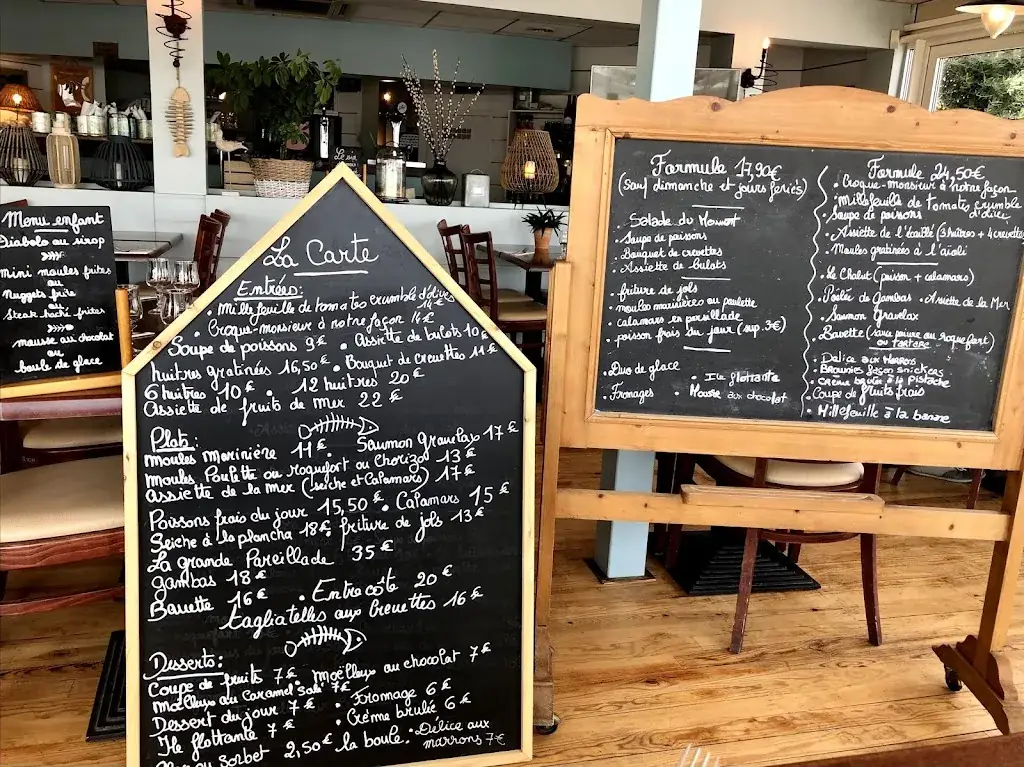 Menu enfant
Diabolo ou sirop
Mini moules frites
ou
Nuggets frite
ou
Steak haché frites
mousse au chocolat
ou
boule de glace
La Carte
Entrées:
• Millefeuille de tomates crumble d'olives 14€
• Croque-monsieur à notre façon 14€
Soupe de poissons 9€ • Assiette de bulots 10€
huîtres gratinées 16,50€ • Bouquet de crevettes 11€
6 huîtres 10€ • 12 huîtres 20€
Assiette de fruits de mer 22€
Plats:
Moules Marinière 11€ • Saumon Gravelax 17€
Moules Poulette ou roquefort ou Chorizo 13€
Assiette de la mer (seiche et Calamars) 17€
Poissons frais du jour 15,50€ • Calamars 15€
Seiche à la plancha 18€ friture de jols 13€
La grande Parcillade 35€
gambas 18€
Bavette 16€ • Entrecôte 20€
tagliatelles aux Crevettes 16€
Desserts:
Coupe de fruits 7€ • Moëlleux au chocolat 7€
Moëlleux au Caramel salé 7€
Dessert du jour 7€ • Fromage 6€
Ile flottante 7€ • Crème brulée 6€
sorbet 2,50€ la boule • Délice aux
marrons 7€
Formule 17,90€
(sauf dimanche et jours feriés)
Salade du Moment
• Soupe de poissons
• Bouquet de crevettes
• Assiette de bulots
• friture de jols
• moules marinières ou poulette
• calamars en persillade
• poisson frais du jour (sup. 3€)
• Duo de glace • Ile flottante
Fromages • Mousse aux chocolat
Formule 24,50€
• Croque-monsieur à notre façon
• Millefeuille de tomates crumble
d'olives
• Soupe de poissons
• Assiette de l'écaillé (3 huîtres + 4 crevettes
• Moules gratinées à l'aïoli
• Le Chalut (poisson + calamars)
• Poêlée de Gambas • Assiette de la Mer
• Saumon gravelax
• Bavette (sauce poivre ou roquefort)
ou tartare
• Délice aux Marrons
• Brownies façon snickers
• Crème brulée à la pistache
• Coupe de fruits frais
• Millefeuille à la